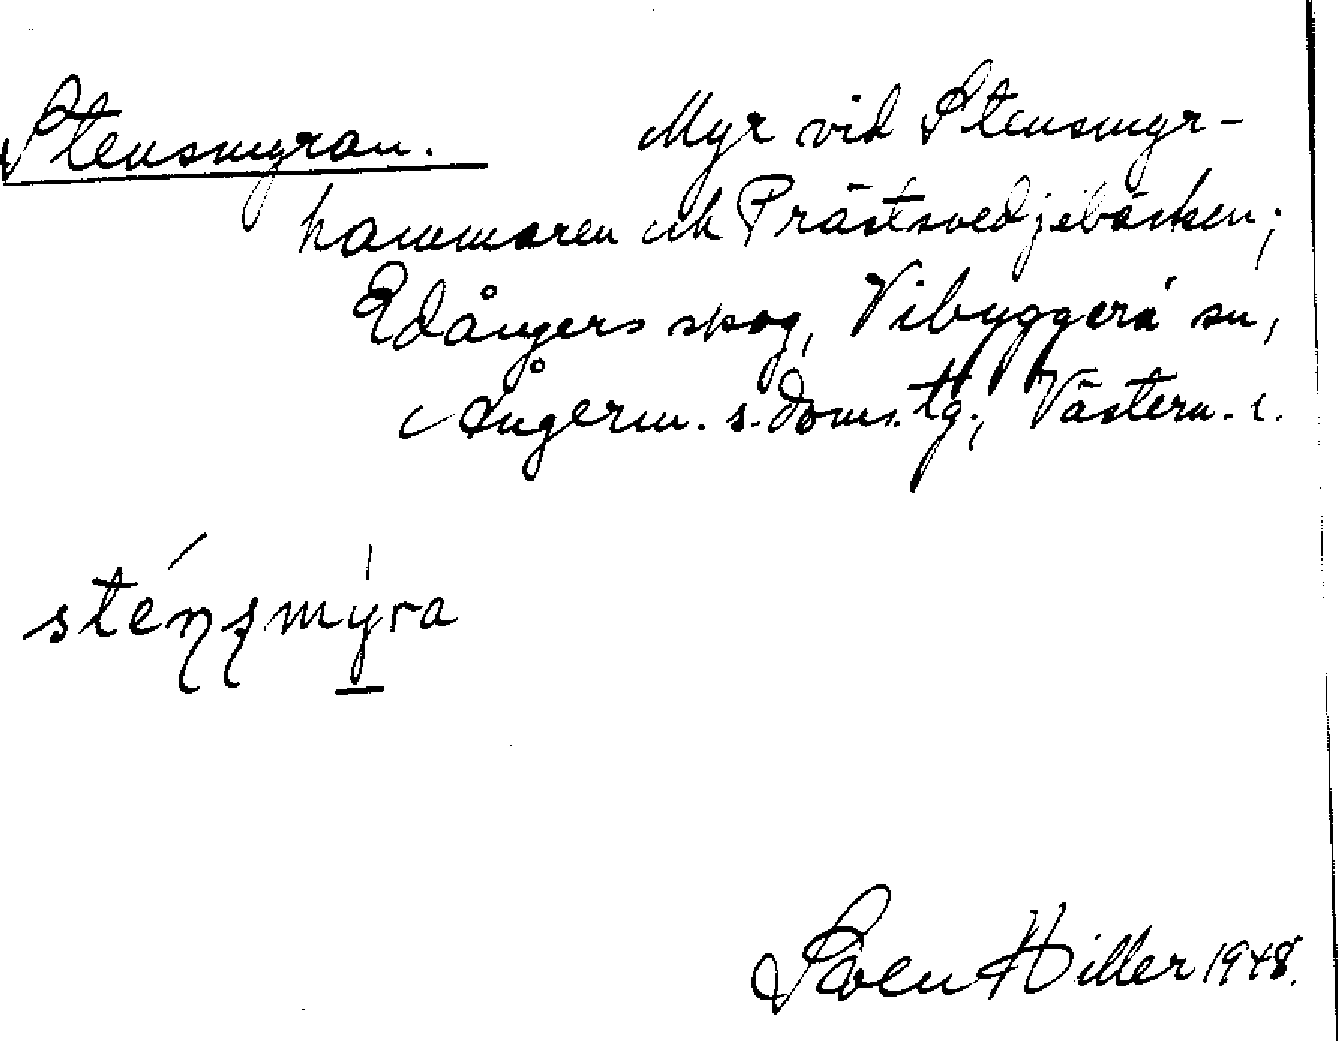 Stensmyran. Myr vid Stensmyr-
hammaren och Prästsvedjebäcken;
Edångers skog, Vibyggerå sn,
Ångerm. s. doms. tg., Västern. l.
sténsmýra
Sven Hiller 1948.